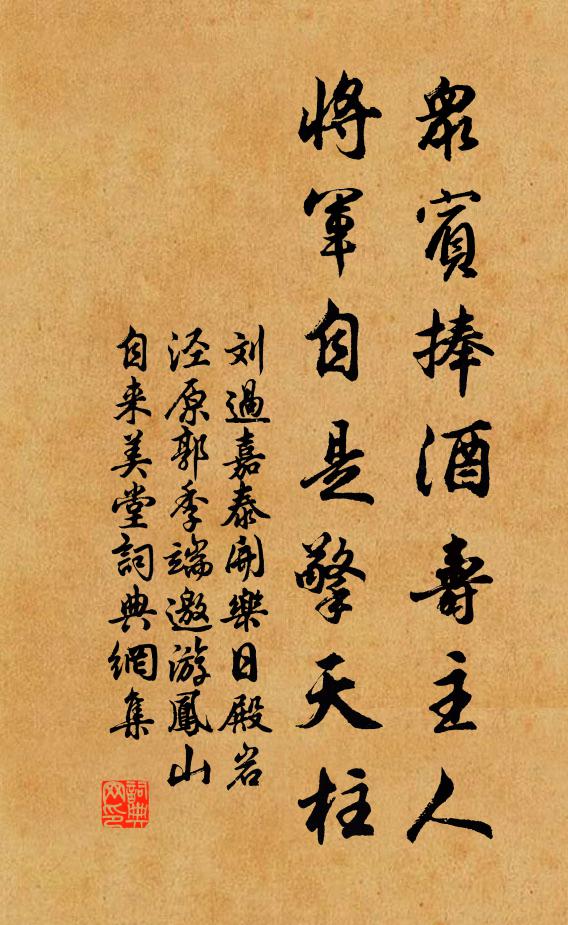 眾賓捧酒壽主人
將軍自是擎天柱
刘過嘉泰開樂日殿岩
泾原郭季端邀游鳳山
自来美堂詞典網集
詞典网印